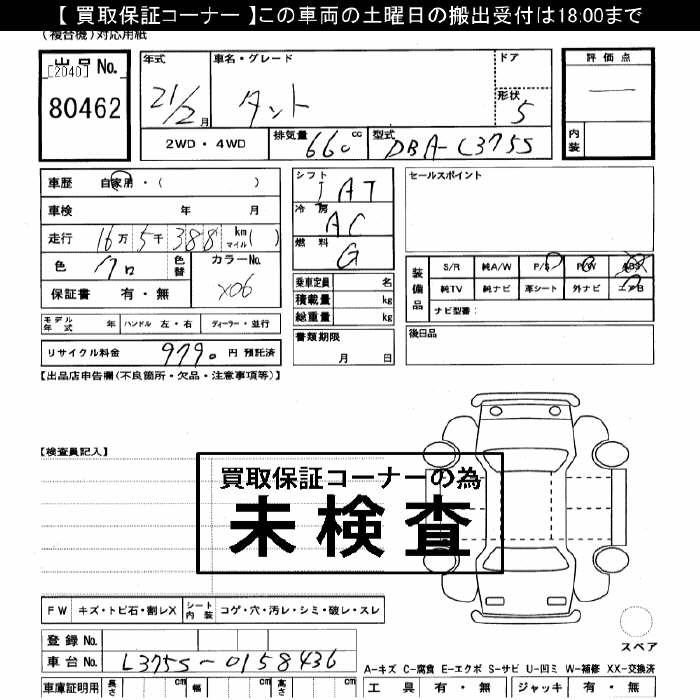 【 買取保証コーナー 】この車両の土曜日の搬出受付は18:00まで
(複合機)対応用紙
出品 No. [2040]
80462
年式 21/2月
車名・グレード タント
ドア
形状 5
評価点 —
内装
2WD・4WD
排気量 660 cc
型式 DBA-L375S
車歴 自家用・( )
車検 年 月
走行 16万5千388 km マイル( )
色 クロ 色替
カラーNo. X06
保証書 有・無
シフト IAT
冷房 AC
燃料 G
乗車定員 名
積載量 kg
総重量 kg
セールスポイント
装備品 S/R 純A/W P/S P/W ABS
純TV 純ナビ 革シート 外ナビ エアB
ナビ型番:
モデル年式 年 ハンドル 左・右 ディーラー・並行
書類期限 月 日
後日品
リサイクル料金 9790 円 預託済
【出品店申告欄(不良箇所・欠品・注意事項等)】
【検査員記入】
買取保証コーナーの為
未検査
FW キズ・トビ石・割レX シート内装 コゲ・穴・汚レ・シミ・破レ・スレ
スペア
登録 No.
車台 No. L375S-0158436
A-キズ C-腐食 E-エクボ S-サビ U-凹ミ W-補修 XX-交換済
車庫証明用 長さ cm 幅 cm 高さ cm
工具 有・無 ジャッキ 有・無